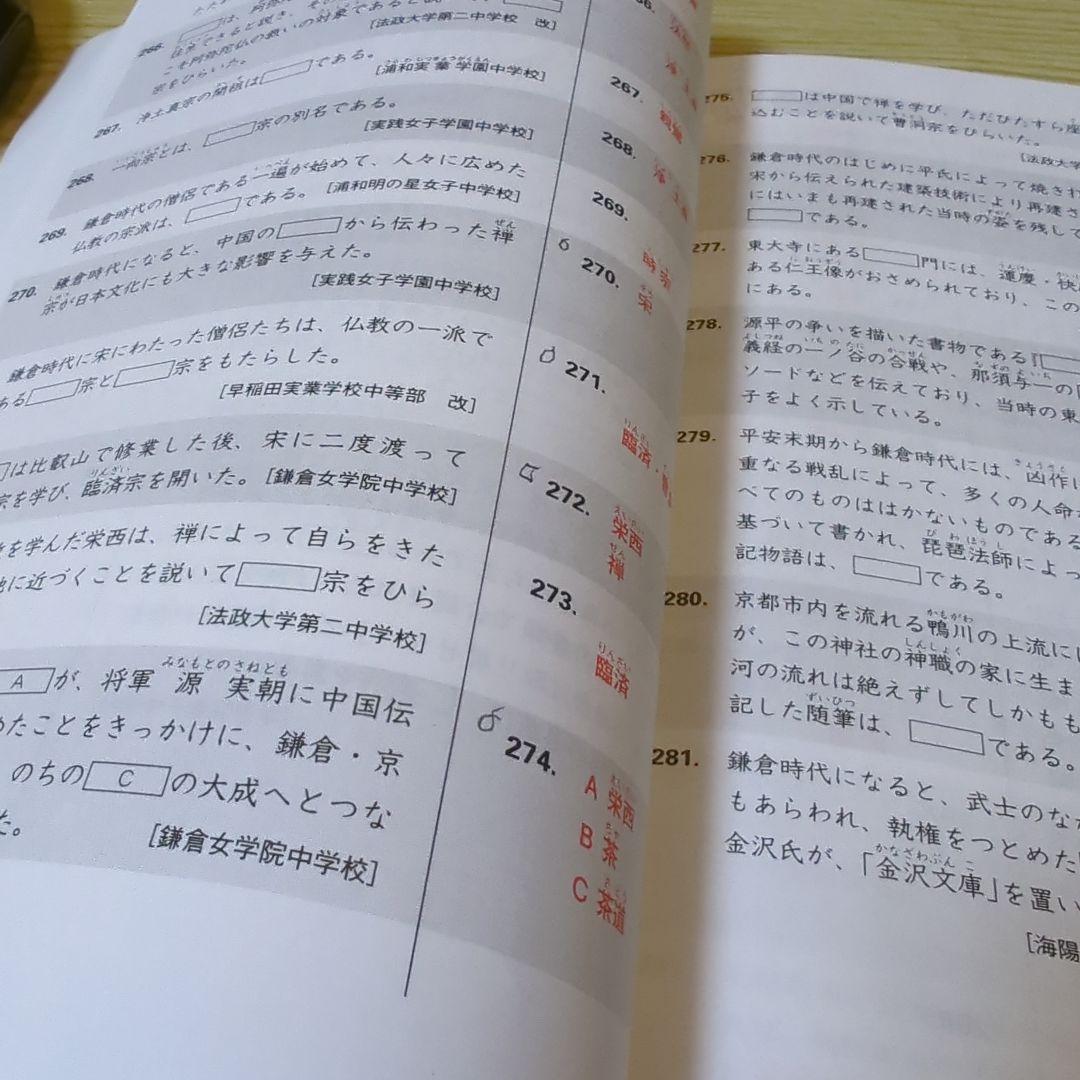 266.
は、阿弥
往生できると説き、その
こそ阿弥陀仏の救いの対象であると説
宗をひらいた。
[法政大学第二中学校 改]
267. 浄土真宗の開祖は である。
[浦和実業学園中学校]
268. 一向宗とは、 宗の別名である。
[実践女子学園中学校]
269. 鎌倉時代の僧侶である一遍が始めて、人々に広めた
仏教の宗派は、 である。 [浦和明の星女子中学校]
270. 鎌倉時代になると、中国の から伝わった禅
宗が日本文化にも大きな影響を与えた。
[実践女子学園中学校]
鎌倉時代に宋にわたった僧侶たちは、仏教の一派で
ある 宗と 宗をもたらした。
[早稲田実業学校中等部 改]
は比叡山で修業した後、宋に二度渡って
宗を学び、臨済宗を開いた。 [鎌倉女学院中学校]
を学んだ栄西は、禅によって自らをきた
地に近づくことを説いて 宗をひら
[法政大学第二中学校]
A が、将軍 源 実朝に中国伝
めたことをきっかけに、鎌倉・京
のちの C の大成へとつな
た。
[鎌倉女学院中学校]
267.
268.
269.
時宗
270.
宋
271.
臨済・
272.
栄西
禅
273.
臨済
274.
A 栄西
B 茶
C 茶道
275. は中国で禅を学び、ただひたすら座
込むことを説いて曹洞宗をひらいた。
[法政大学
276. 鎌倉時代のはじめに平氏によって焼き打
宋から伝えられた建築技術により再建さ
にはいまも再建された当時の姿を残して
である。
277. 東大寺にある 門には、運慶・快
ある仁王像がおさめられており、この
にある。
278. 源平の争いを描いた書物である『
義経の一ノ谷の合戦や、那須与一の
ソードなどを伝えており、当時の東
子をよく示している。
279. 平安末期から鎌倉時代には、凶作
重なる戦乱によって、多くの人命
べてのものははかないものである
基づいて書かれ、琵琶法師によっ
記物語は、 である。
280. 京都市内を流れる鴨川の上流に
が、この神社の神職の家に生ま
河の流れは絶えずしてしかもも
記した随筆は、 である。
281. 鎌倉時代になると、武士のなか
もあらわれ、執権をつとめた
金沢氏が、「金沢文庫」を置い
[海陽